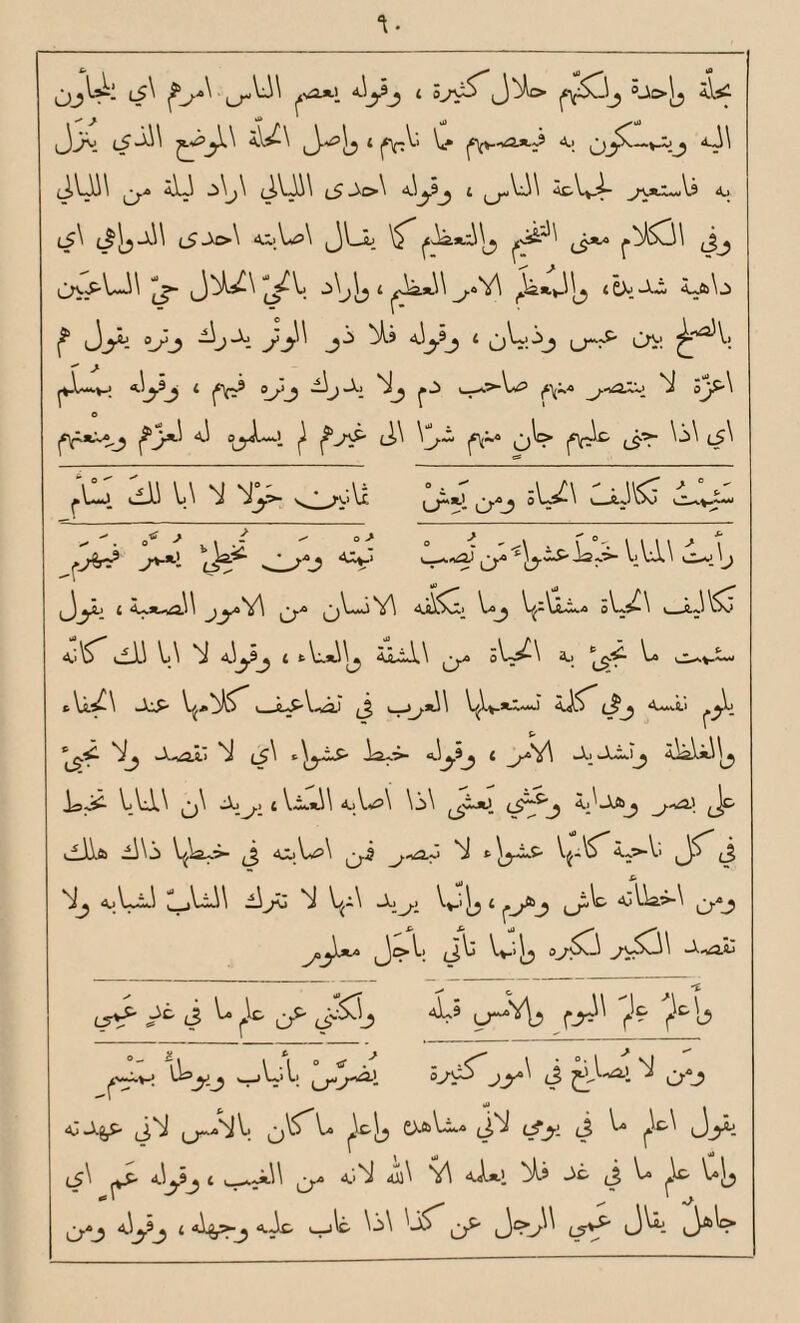 ٦٠
محلة واحدة ولكنهم حلال كثيرة ، وقوله يعصم الناس أمرهم أي يلجأون
إليه ويتمسكون به فيعصمهم مما نابهم ، وأصل المحلة الموضع الذي ينزل
به فاستعير لجماعة الناس ، وقوله إحدى الليالي أراد ليلة من الليالي
وفي الكلام معنى التفخيم والتعظيم كما يقال أصابته إحدى الدواهي أي
داهية شديدة ، والمعظم الأمر العظيم ، وأراد بالحي الحلال حي الساعين
بالصلح بين عبس وذبيان ، وقوله فلا ذو الوتر يدرك وتره يقول هم
أعزة لا ينتصر منهم صاحب دم ولا يدرك وتره فيهم ، وقوله بمسلم
أي إذا جنى عليهم جان منهم شرا إلى غيرهم لم يسلموه له لعزهم ومنعتهم
سئمت تكاليف الحياة ومن يعش ثمانين حولا لا أبا لك يسأم
رأيت المنايا خبط عشواء من تصب تمته ومن تخطئ يعمر فيهرم
تكاليف الحياة مشقاتها وما يتكلفه الإنسان من الأمور الصعبة ، يقول
سئمت ما تجيء به الحياة من المشقة والعناء ، وقوله لا أبا لك كأنه
يلوم نفسه وهي كلمة تستعملها العرب في تضاعيف كلامها عند الجفاء
والغلظة وتشديد الأمر ، وقوله خبط عشواء أي لا تقصد ولا تجيء
على بصر وهداية وعشى يعشى إذا أصابه العشاء ، يريد أن المنايا تخبط
في كل ناحية كأنها عشواء لا تبصر فمن أصابته في خبطها ذاك هلك
ومن أخطأته عاش وهرم ، وإنما يريد أنها لا تترك الشباب لشبابه ولا
تقصد الكبير لكبره وإنما تأتي بأجل معلوم
وأعلم علم اليوم والأمس قبله ولكنني عن علم ما في غد عمي
ومن لا يصانع في أمور كثيرة يضرس بأنياب ويوطأ بمنسم
يقول أعلم ما في يومي لأني مشاهده وأعلم ما كان بالأمس لأني عهدته
وأما علم ما في غد فلا يعلمه إلا الله لأنه من الغيب ، وقوله عم أي
جاهل يقال عمي الرجل عن كذا إذا غاب عليه وجهله ، وقوله ومن